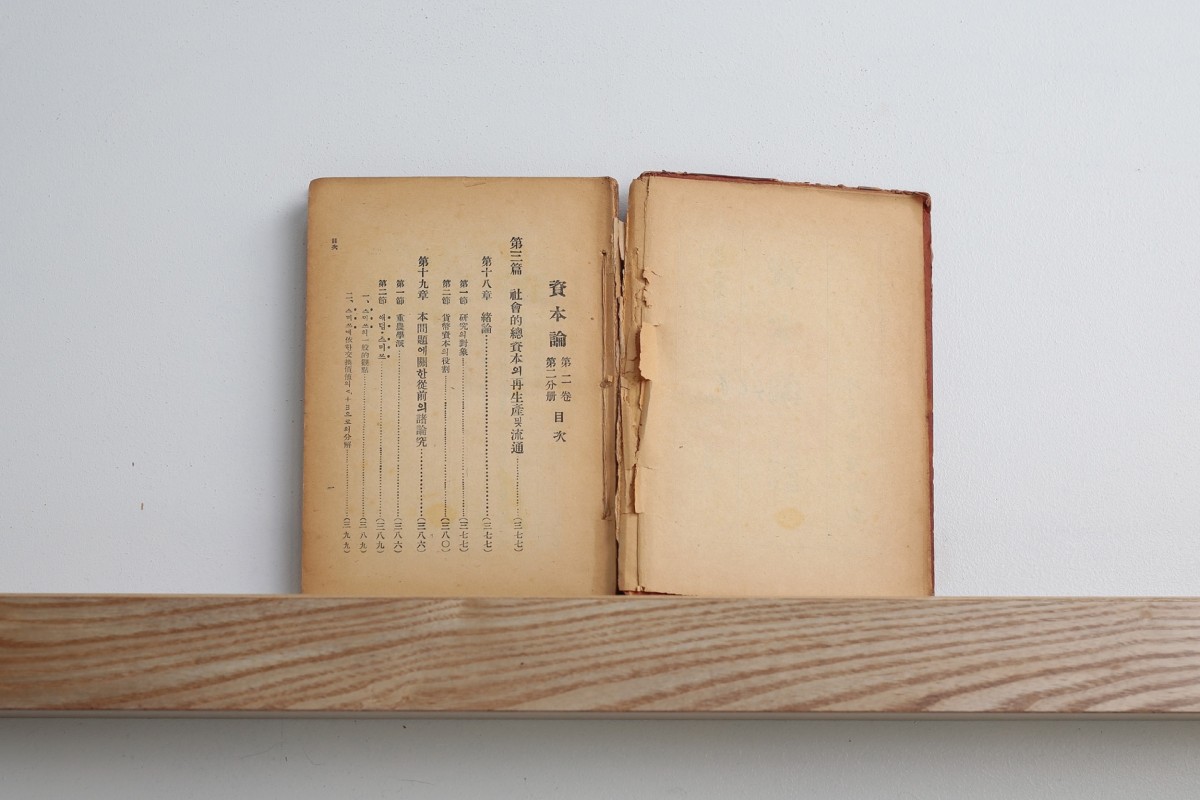 資本論 第二卷 第二分册 目次
第三篇 社會的總資本의再生產및流通………(三七七)
第十八章 緖論………(三七七)
第一節 硏究의對象………(三七七)
第二節 貨幣資本의役割………(三八〇)
第十九章 本問題에關한從前의諸論究………(三八六)
第一節 重農學派………(三八六)
第二節 애덤·스미쓰………(三八九)
一、스미쓰의一般的觀點………(三八九)
二、스미쓰에依한交換價値의v+m으로의分解………(三九九)
目次
一